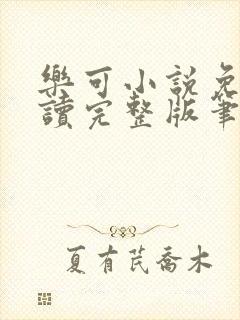 樂可小說免
讀完整版筆
夏有芪喬木